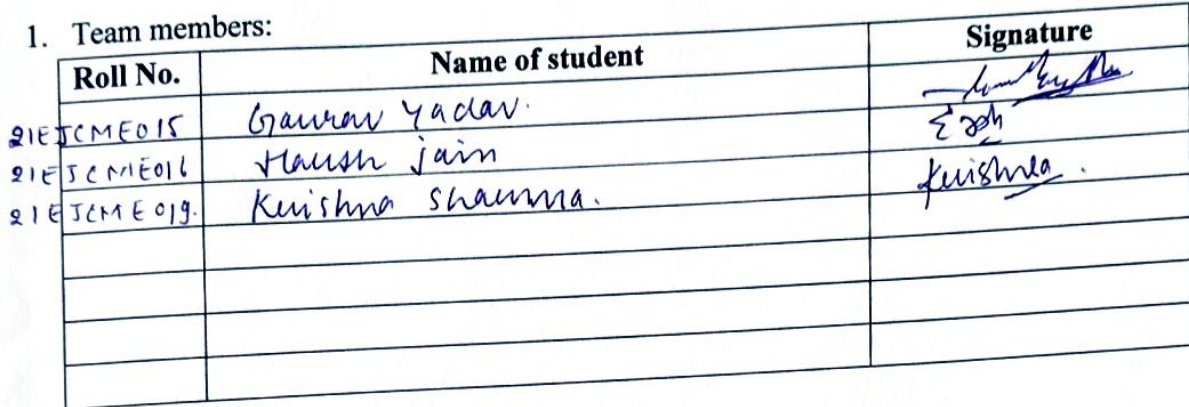 1. Team members:
Roll No. Name of student Signature
21EJCME015 Gaurav Yadav.
21EJCME016 Harsh jain
21EJCME019. Krishna sharma. Krishna